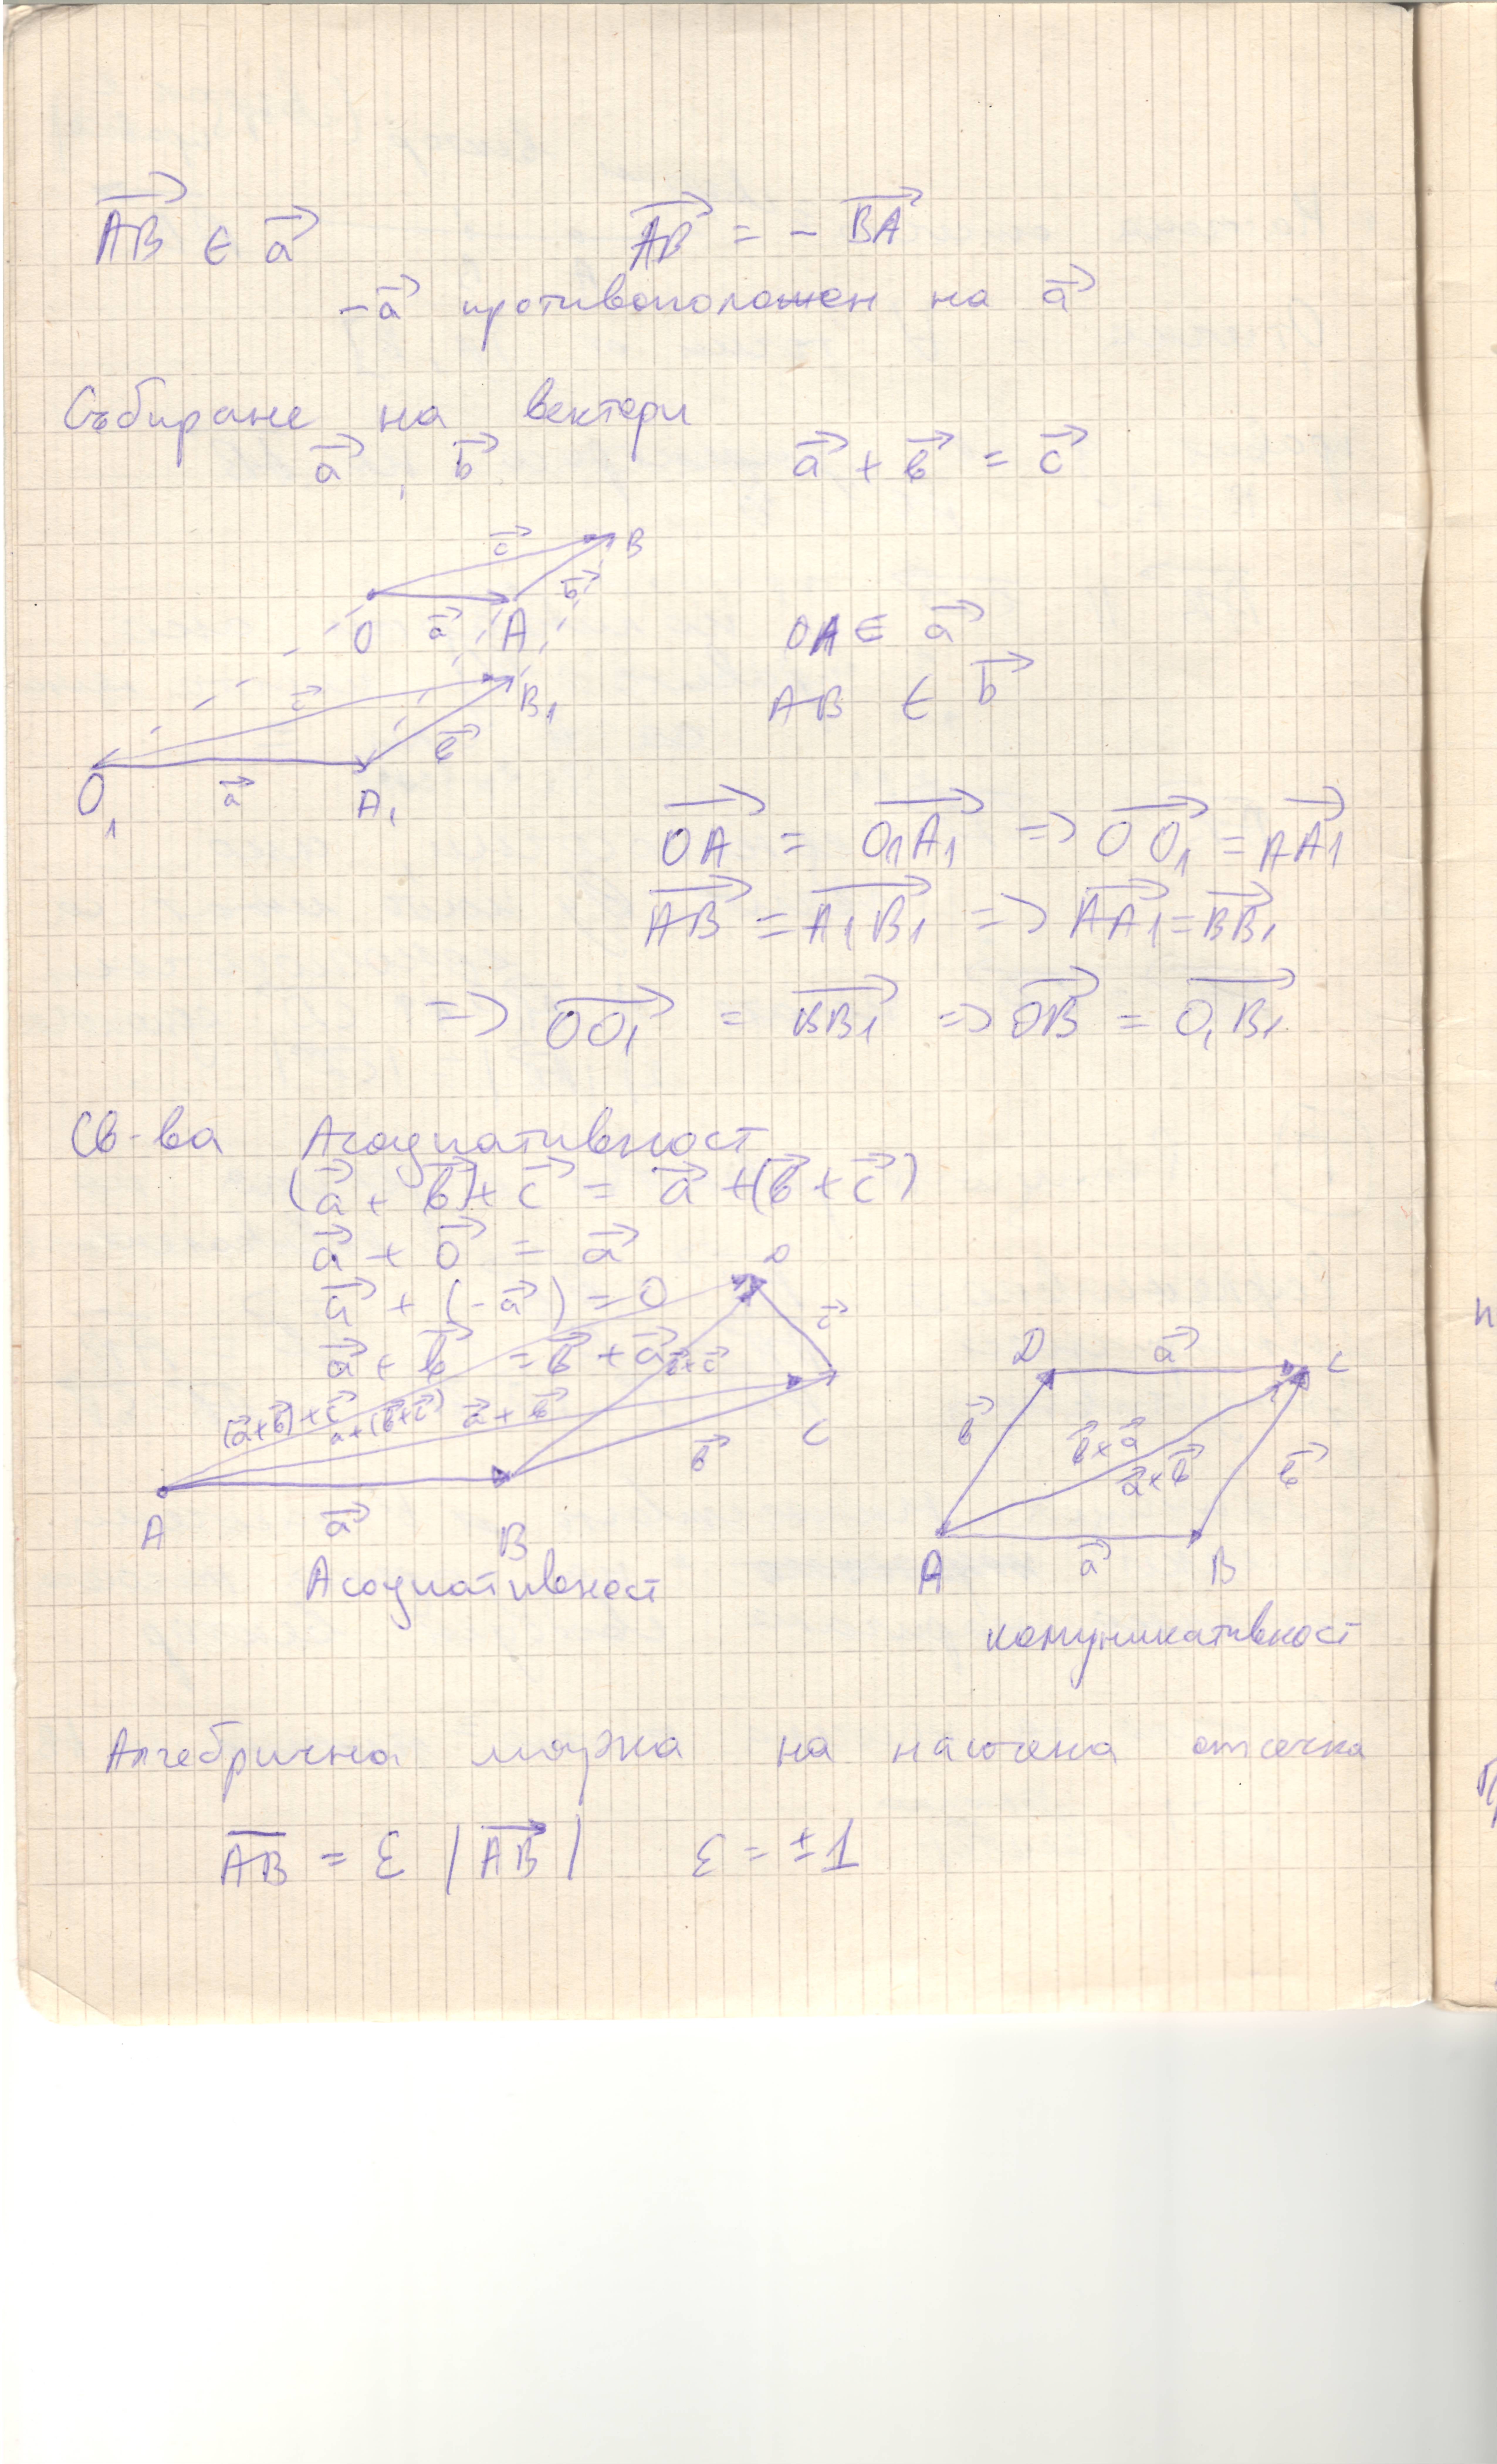 $\overrightarrow{AB} \in \vec{a}$ $\overrightarrow{AB} = -\overrightarrow{BA}$
$-\vec{a}$ противоположен на $\vec{a}$
Събиране на вектори
$\vec{a}$ , $\vec{b}$ $\vec{a} + \vec{b} = \vec{c}$
$\vec{c}$ B
$\vec{b}$
O $\vec{a}$ A
OA ∈ $\vec{a}$
$\vec{c}$ $B_1$
AB ∈ $\vec{b}$
$\vec{b}$
$O_1$ $\vec{a}$ $A_1$
$\overrightarrow{OA} = \overrightarrow{O_1A_1} \Rightarrow \overrightarrow{OO_1} = \overrightarrow{AA_1}$
$\overrightarrow{AB} = \overrightarrow{A_1B_1} \Rightarrow \overrightarrow{AA_1} = \overrightarrow{BB_1}$
$\Rightarrow \overrightarrow{OO_1} = \overrightarrow{BB_1} \Rightarrow \overrightarrow{OB} = \overrightarrow{O_1B_1}$
Св-ва Асоциативност
$(\vec{a} + \vec{b}) + \vec{c} = \vec{a} + (\vec{b} + \vec{c})$
$\vec{a} + \vec{o} = \vec{a}$
D
$\vec{a} + (-\vec{a}) = 0$
$\vec{c}$
$\vec{a} + \vec{b} = \vec{b} + \vec{a}$
$\vec{b} + \vec{c}$
$(\vec{a} + \vec{b}) + \vec{c}$ $a + (\vec{b} + \vec{c})$ $\vec{a} + \vec{b}$
C
$\vec{b}$
A $\vec{a}$ B
Асоциативност
D $\vec{a}$ C
$\vec{b}$ $\vec{b} + \vec{a}$
$\vec{a} + \vec{b}$ $\vec{b}$
A $\vec{a}$ B
комуникативност
Алгебрична мярка на насочена отсечка
$\overline{AB} = \varepsilon |\overrightarrow{AB}|$ $\varepsilon = \pm 1$